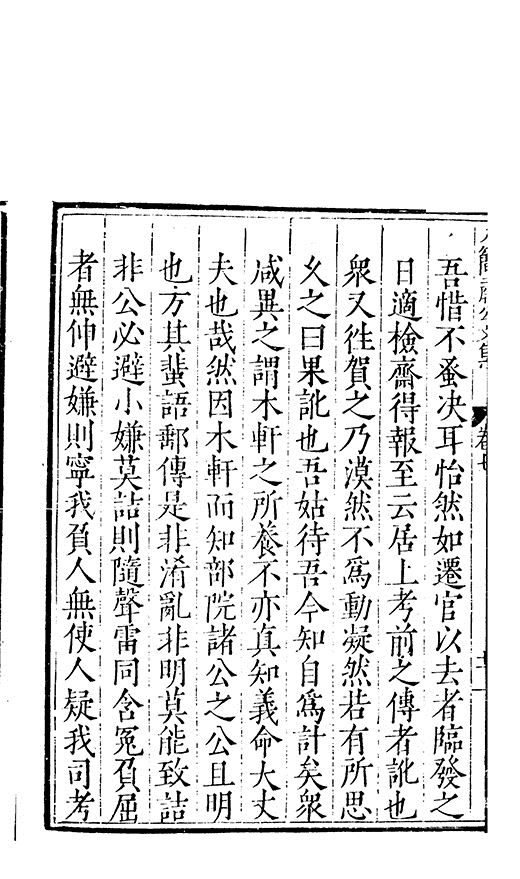 卷七
吾惜不蚤决耳怡然如遷官以去者臨發之
日適檢齋得報至云居上考前之傳者訛也
衆又徃賀之乃漠然不爲動凝然若有所思
久之曰果訛也吾姑待吾今知自爲計矣衆
咸異之謂木軒之所養不亦真知義命大丈
夫也哉然因木軒而知部院諸公之公且明
也方其蜚語郵傳是非淆亂非明莫能致詰
非公必避小嫌莫詰則隨聲雷同含冤負屈
者無伸避嫌則寧我負人無使人疑我司考